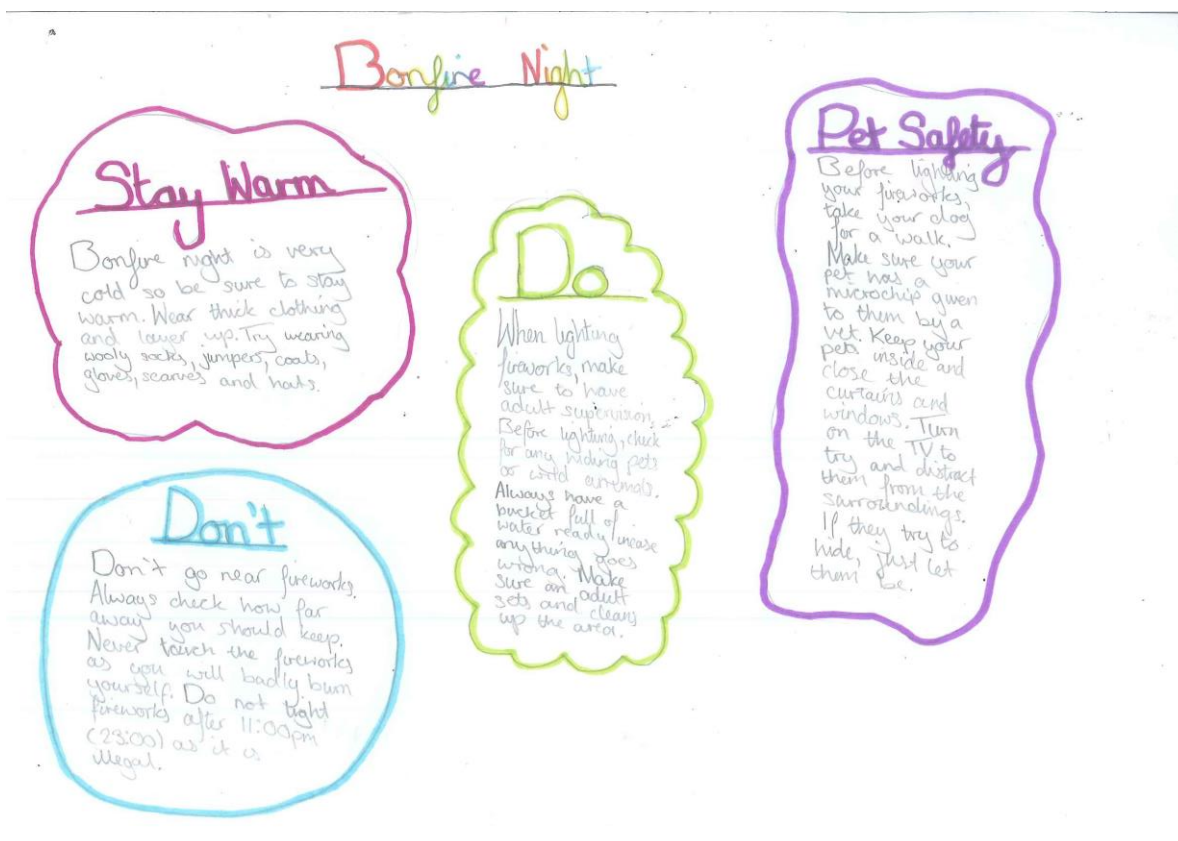 Bonfire Night
Stay Warm
Bonfire night is very
cold so be sure to stay
warm. Wear thick clothing
and layer up. Try wearing
wooly socks, jumpers, coats,
gloves, scarves and hats.
Don't
Don't go near fireworks.
Always check how far
away you should keep.
Never touch the fireworks
as you will badly burn
yourself. Do not light
fireworks after 11:00pm
(23:00) as it is
illegal.
Do
When lighting
fireworks, make
sure to have
adult supervision.
Before lighting, check
for any hiding pets
or wild animals.
Always have a
bucket full of
water ready incase
anything goes
wrong. Make
sure an adult
sets and clears
up the area.
Pet Safety
Before lighting
your fireworks,
take your dog
for a walk.
Make sure your
pet has a
microchip given
to them by a
vet. Keep your
pets inside and
close the
curtains and
windows. Turn
on the TV to
try and distract
them from the
sarroundings.
If they try to
hide, just let
them be.